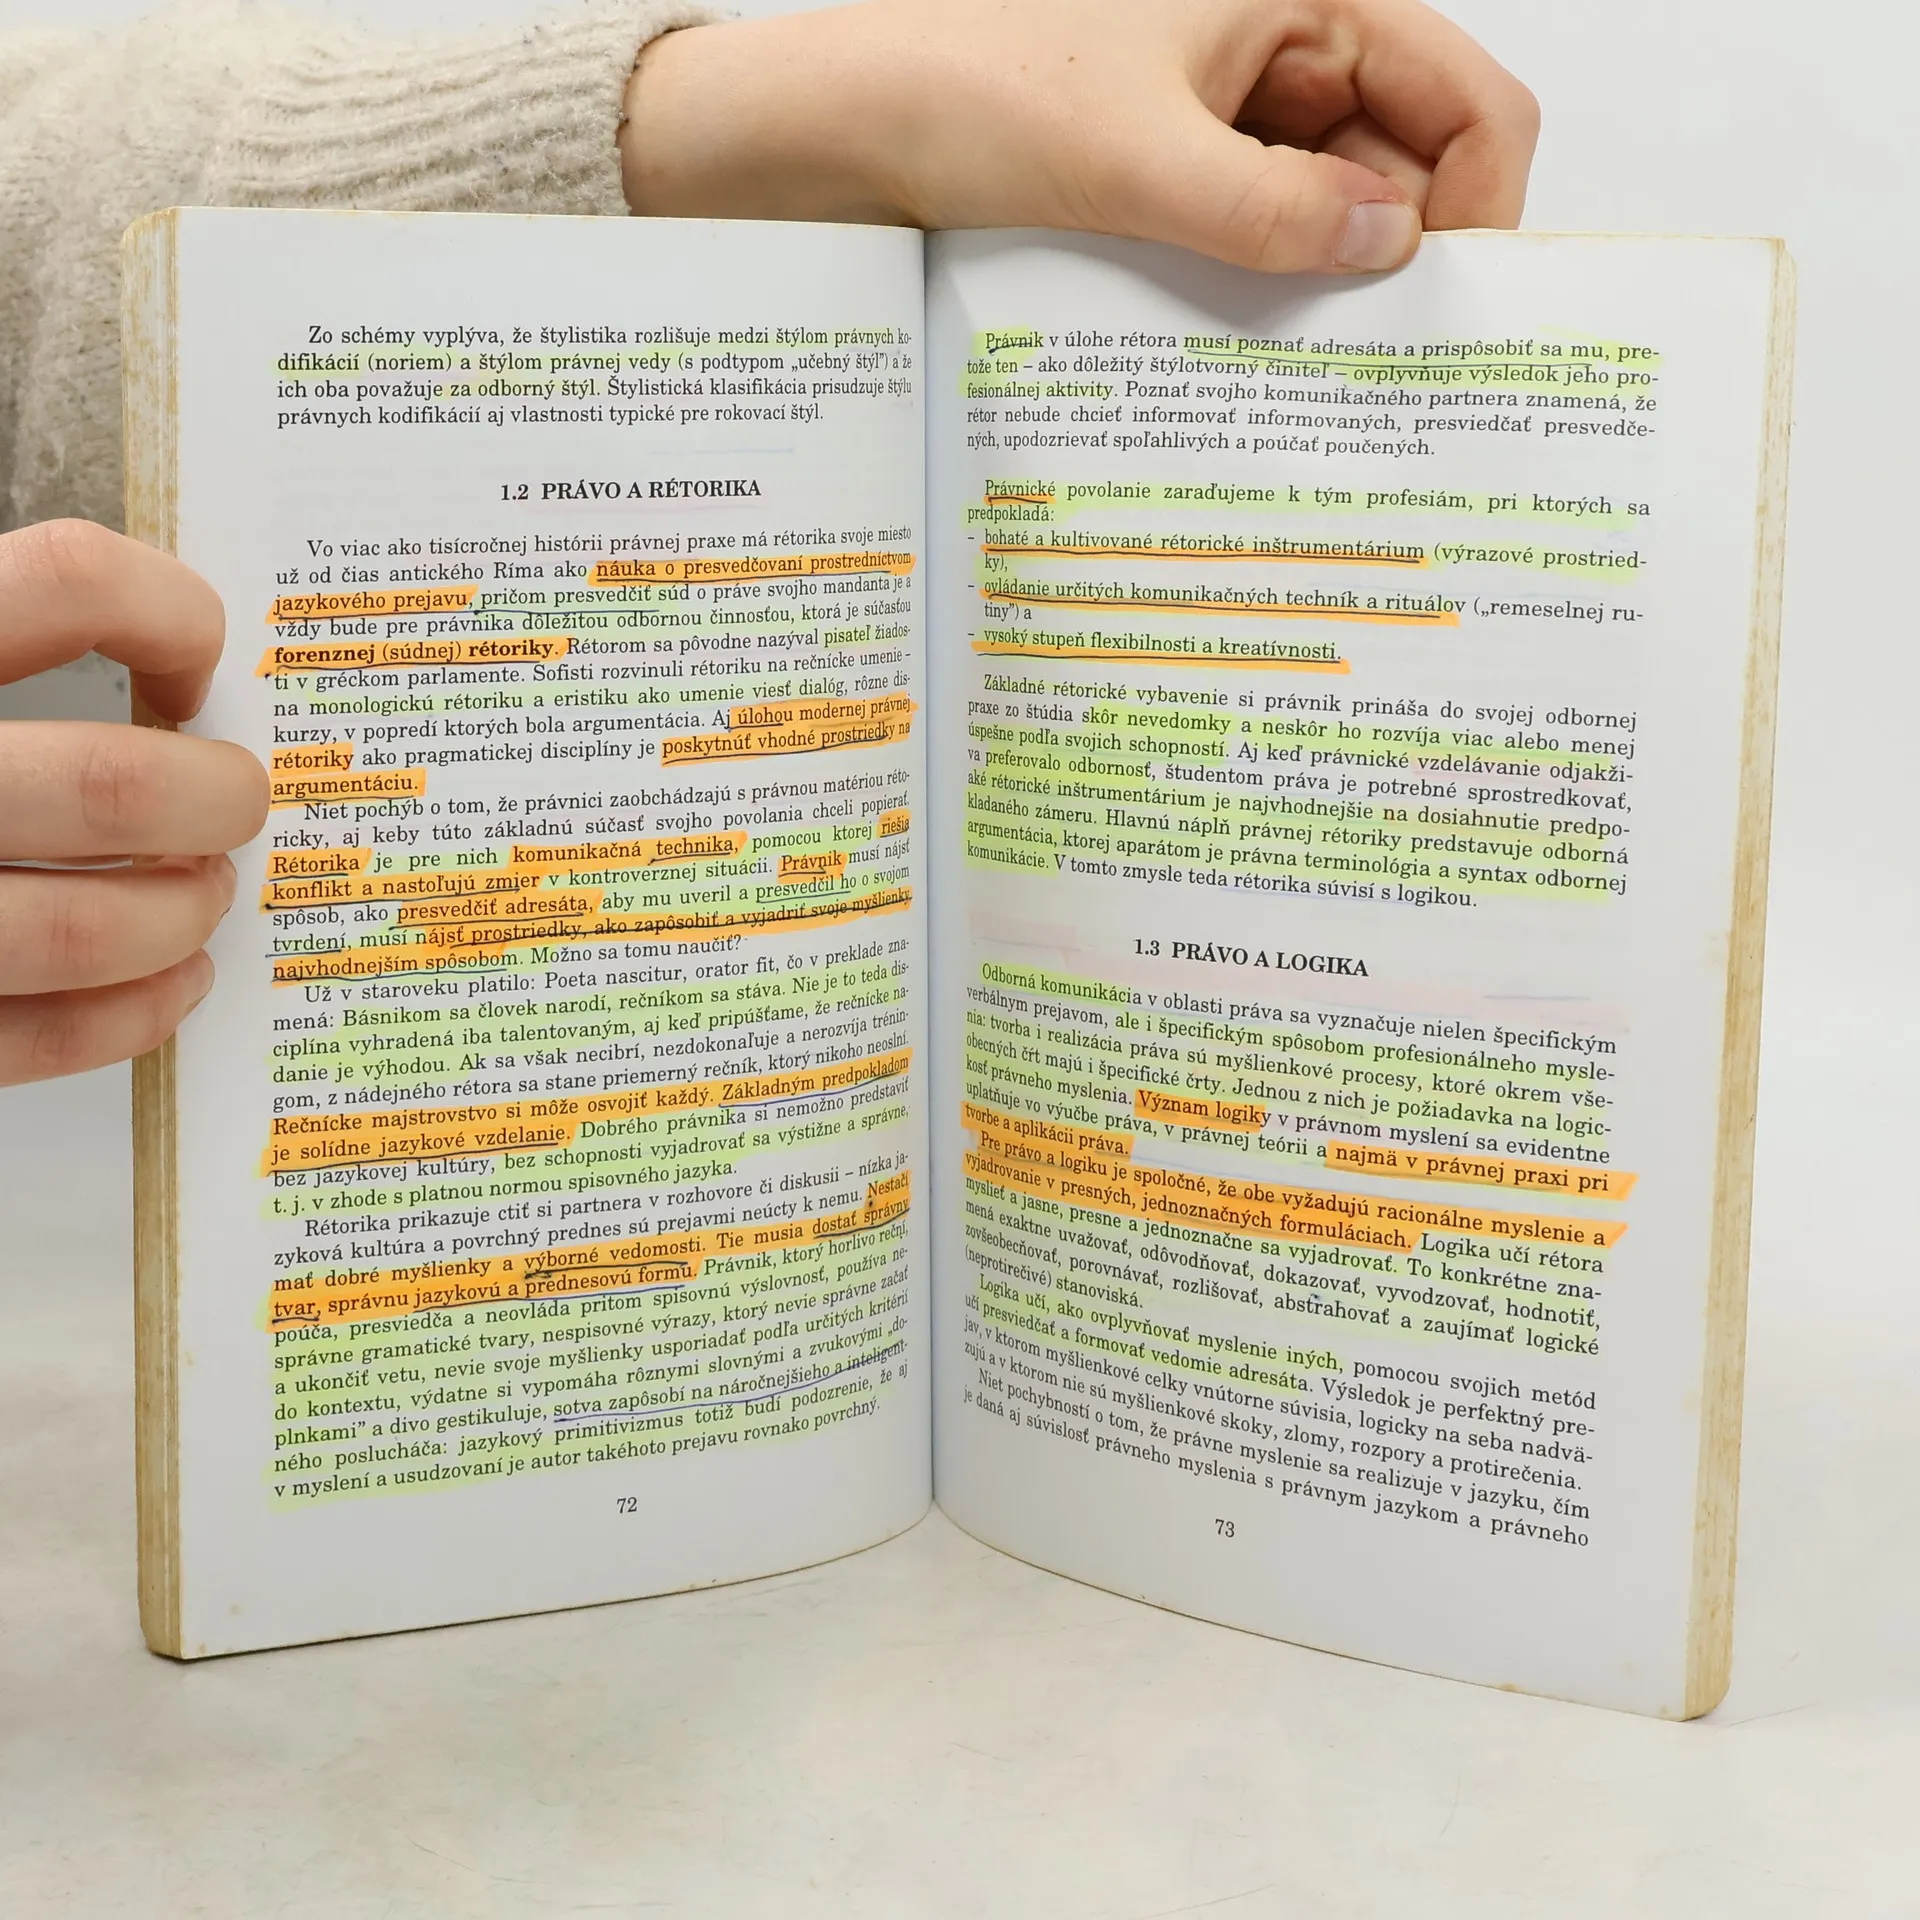 Zo schémy vyplýva, že štylistika rozlišuje medzi štýlom právnych ko-
difikácií (noriem) a štýlom právnej vedy (s podtypom „učebný štýl”) a že
ich oba považuje za odborný štýl. Štylistická klasifikácia prisudzuje štýlu
právnych kodifikácií aj vlastnosti typické pre rokovací štýl.
1.2 PRÁVO A RÉTORIKA
Vo viac ako tisícročnej histórii právnej praxe má rétorika svoje miesto
už od čias antického Ríma ako náuka o presvedčovaní prostredníctvom
jazykového prejavu, pričom presvedčiť súd o práve svojho mandanta je a
vždy bude pre právnika dôležitou odbornou činnosťou, ktorá je súčasťou
forenznej (súdnej) rétoriky. Rétorom sa pôvodne nazýval pisateľ žiados-
ti v gréckom parlamente. Sofisti rozvinuli rétoriku na rečnícke umenie –
na monologickú rétoriku a eristiku ako umenie viesť dialóg, rôzne dis-
kurzy, v popredí ktorých bola argumentácia. Aj úlohou modernej právnej
rétoriky ako pragmatickej disciplíny je poskytnúť vhodné prostriedky na
argumentáciu.
Niet pochýb o tom, že právnici zaobchádzajú s právnou matériou réto-
ricky, aj keby túto základnú súčasť svojho povolania chceli popierať.
Rétorika je pre nich komunikačná technika, pomocou ktorej riešia
konflikt a nastoľujú zmier v kontroverznej situácii. Právnik musí nájsť
spôsob, ako presvedčiť adresáta, aby mu uveril a presvedčil ho o svojom
tvrdení, musí nájsť prostriedky, ako zapôsobiť a vyjadriť svoje myšlienky
najvhodnejším spôsobom. Možno sa tomu naučiť?
Už v staroveku platilo: Poeta nascitur, orator fit, čo v preklade zna-
mená: Básnikom sa človek narodí, rečníkom sa stáva. Nie je to teda dis-
ciplína vyhradená iba talentovaným, aj keď pripúšťame, že rečnícke na-
danie je výhodou. Ak sa však necibrí, nezdokonaľuje a nerozvíja trénin-
gom, z nádejného rétora sa stane priemerný rečník, ktorý nikoho neoslní.
Rečnícke majstrovstvo si môže osvojiť každý. Základným predpokladom
je solídne jazykové vzdelanie. Dobrého právnika si nemožno predstaviť
bez jazykovej kultúry, bez schopnosti vyjadrovať sa výstižne a správne,
t. j. v zhode s platnou normou spisovného jazyka.
Rétorika prikazuje ctiť si partnera v rozhovore či diskusii – nízka ja-
zyková kultúra a povrchný prednes sú prejavmi neúcty k nemu. Nestačí
mať dobré myšlienky a výborné vedomosti. Tie musia dostať správny
tvar, správnu jazykovú a prednesovú formu. Právnik, ktorý horlivo reční,
poúča, presviedča a neovláda pritom spisovnú výslovnosť, používa ne-
správne gramatické tvary, nespisovné výrazy, ktorý nevie správne začať
a ukončiť vetu, nevie svoje myšlienky usporiadať podľa určitých kritérií
do kontextu, výdatne si vypomáha rôznymi slovnými a zvukovými „do-
plnkami” a divo gestikuluje, sotva zapôsobí na náročnejšieho a inteligent-
ného poslucháča: jazykový primitivizmus totiž budí podozrenie, že aj
v myslení a usudzovaní je autor takéhoto prejavu rovnako povrchný.
72
Právnik v úlohe rétora musí poznať adresáta a prispôsobiť sa mu, pre-
tože ten – ako dôležitý štýlotvorný činiteľ – ovplyvňuje výsledok jeho pro-
fesionálnej aktivity. Poznať svojho komunikačného partnera znamená, že
rétor nebude chcieť informovať informovaných, presviedčať presvedče-
ných, upodozrievať spoľahlivých a poúčať poučených.
Právnické povolanie zaraďujeme k tým profesiám, pri ktorých sa
predpokladá:
- bohaté a kultivované rétorické inštrumentárium (výrazové prostried-
ky),
- ovládanie určitých komunikačných techník a rituálov („remeselnej ru-
tiny”) a
- vysoký stupeň flexibilnosti a kreatívnosti.
Základné rétorické vybavenie si právnik prináša do svojej odbornej
praxe zo štúdia skôr nevedomky a neskôr ho rozvíja viac alebo menej
úspešne podľa svojich schopností. Aj keď právnické vzdelávanie odjakži-
va preferovalo odbornosť, študentom práva je potrebné sprostredkovať,
aké rétorické inštrumentárium je najvhodnejšie na dosiahnutie predpo-
kladaného zámeru. Hlavnú náplň právnej rétoriky predstavuje odborná
argumentácia, ktorej aparátom je právna terminológia a syntax odbornej
komunikácie. V tomto zmysle teda rétorika súvisí s logikou.
1.3 PRÁVO A LOGIKA
Odborná komunikácia v oblasti práva sa vyznačuje nielen špecifickým
verbálnym prejavom, ale i špecifickým spôsobom profesionálneho mysle-
nia: tvorba i realizácia práva sú myšlienkové procesy, ktoré okrem vše-
obecných čŕt majú i špecifické črty. Jednou z nich je požiadavka na logic-
kosť právneho myslenia. Význam logiky v právnom myslení sa evidentne
uplatňuje vo výučbe práva, v právnej teórii a najmä v právnej praxi pri
tvorbe a aplikácii práva.
Pre právo a logiku je spoločné, že obe vyžadujú racionálne myslenie a
vyjadrovanie v presných, jednoznačných formuláciach. Logika učí rétora
myslieť a jasne, presne a jednoznačne sa vyjadrovať. To konkrétne zna-
mená exaktne uvažovať, odôvodňovať, dokazovať, vyvodzovať, hodnotiť,
zovšeobecňovať, porovnávať, rozlišovať, abstrahovať a zaujímať logické
(neprotirečivé) stanoviská.
Logika učí, ako ovplyvňovať myslenie iných, pomocou svojich metód
učí presviedčať a formovať vedomie adresáta. Výsledok je perfektný pre-
jav, v ktorom myšlienkové celky vnútorne súvisia, logicky na seba nadvä-
zujú a v ktorom nie sú myšlienkové skoky, zlomy, rozpory a protirečenia.
Niet pochybností o tom, že právne myslenie sa realizuje v jazyku, čím
je daná aj súvislosť právneho myslenia s právnym jazykom a právneho
73